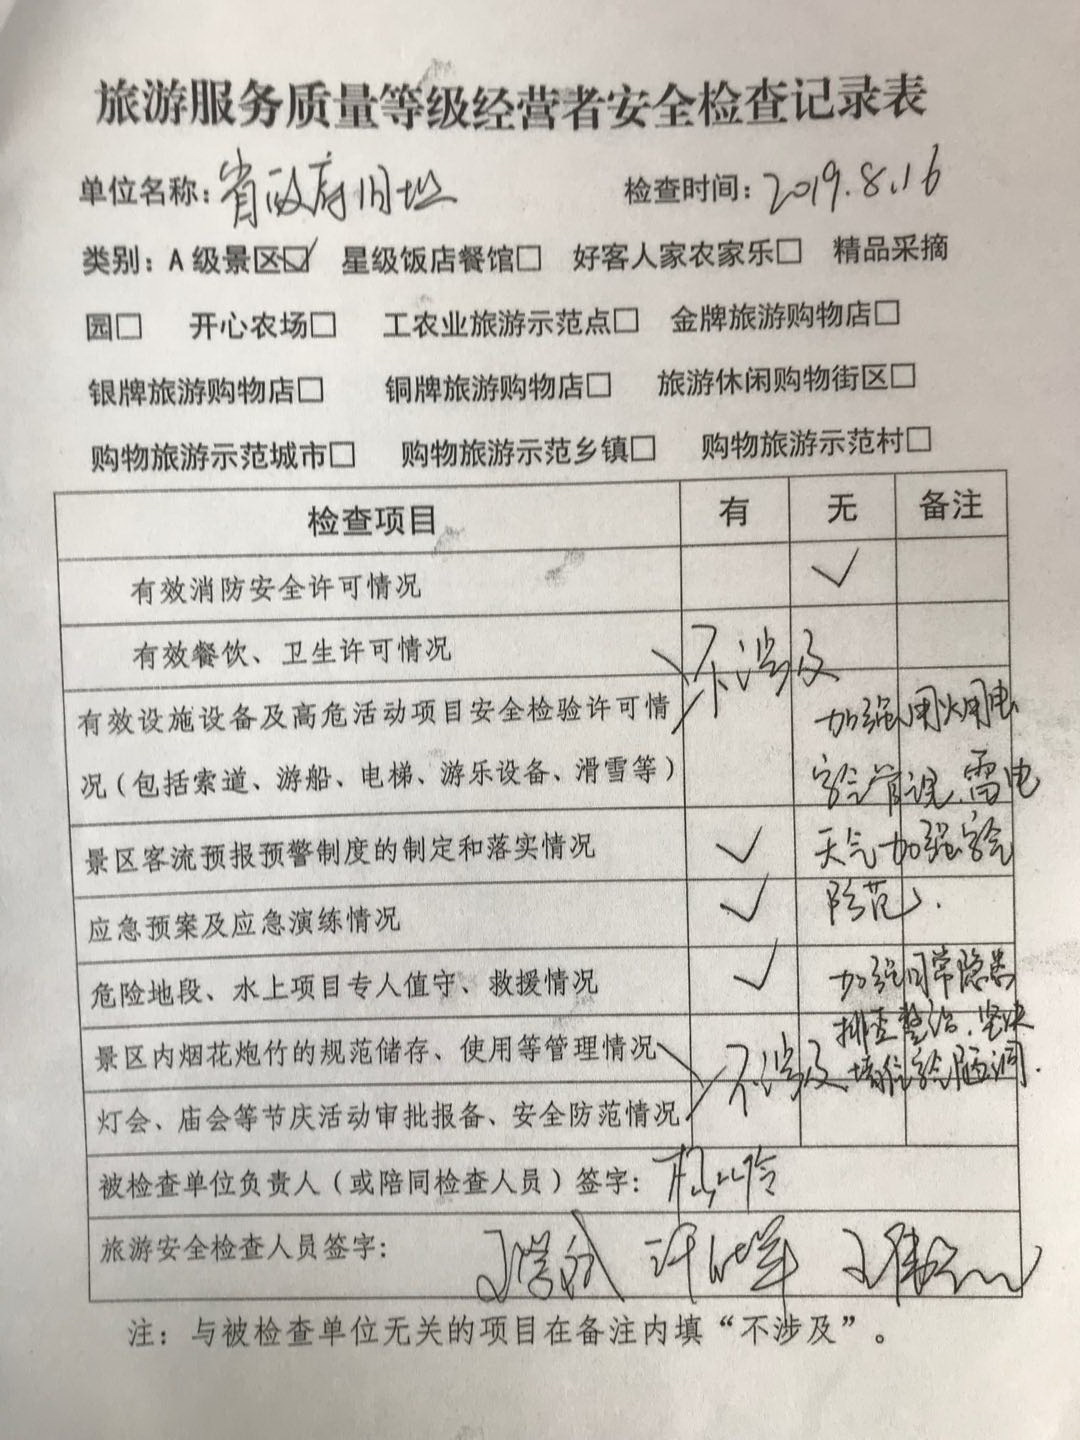 旅游服务质量等级经营者安全检查记录表
单位名称：省政府旧址 检查时间：2019.8.16
类别：A级景区☑ 星级饭店餐馆□ 好客人家农家乐□ 精品采摘
园□ 开心农场□ 工农业旅游示范点□ 金牌旅游购物店□
银牌旅游购物店□ 铜牌旅游购物店□ 旅游休闲购物街区□
购物旅游示范城市□ 购物旅游示范乡镇□ 购物旅游示范村□
检查项目 有 无 备注
有效消防安全许可情况 ✓
有效餐饮、卫生许可情况 不涉及
有效设施设备及高危活动项目安全检验许可情 加强用火用电
况（包括索道、游船、电梯、游乐设备、滑雪等） 安全管理.雷电
景区客流预报预警制度的制定和落实情况 ✓ 天气加强安全
应急预案及应急演练情况 ✓ 防范.
危险地段、水上项目专人值守、救援情况 ✓ 加强日常隐患
排查整治.坚决
景区内烟花炮竹的规范储存、使用等管理情况 不涉及 堵住安全漏洞.
灯会、庙会等节庆活动审批报备、安全防范情况
被检查单位负责人（或陪同检查人员）签字：
旅游安全检查人员签字：
注：与被检查单位无关的项目在备注内填“不涉及”。